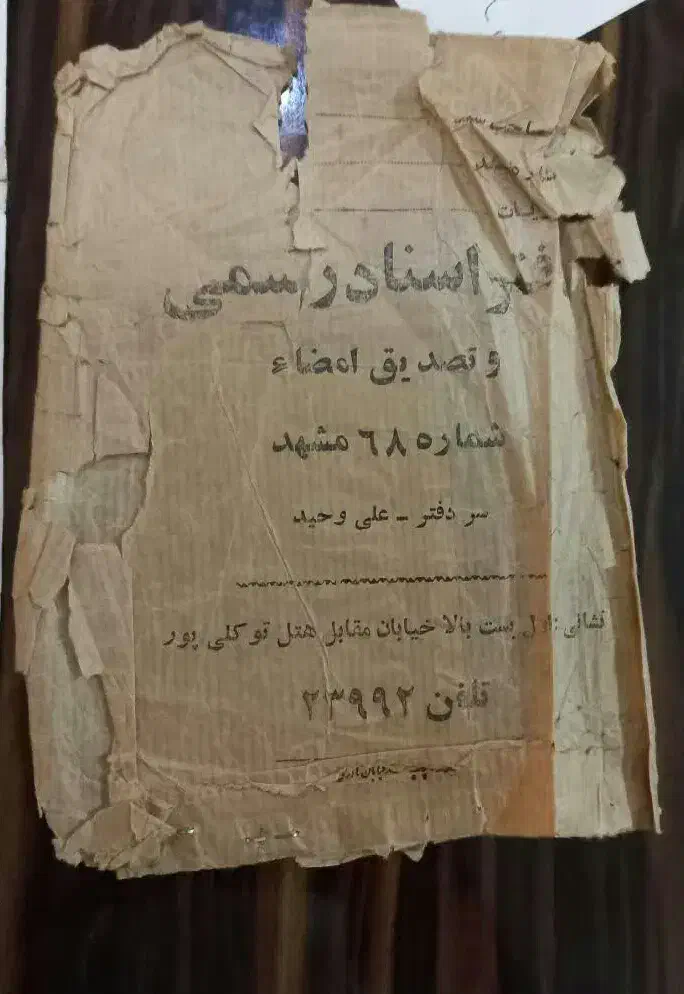 صاحب سند
دفتر اسناد رسمی
و تصدیق امضاء
شماره ۶۸ مشهد
سر دفتر - علی وحید
نشانی: اول بست بالا خیابان مقابل هتل توکلی پور
تلفن ۲۳۹۹۲